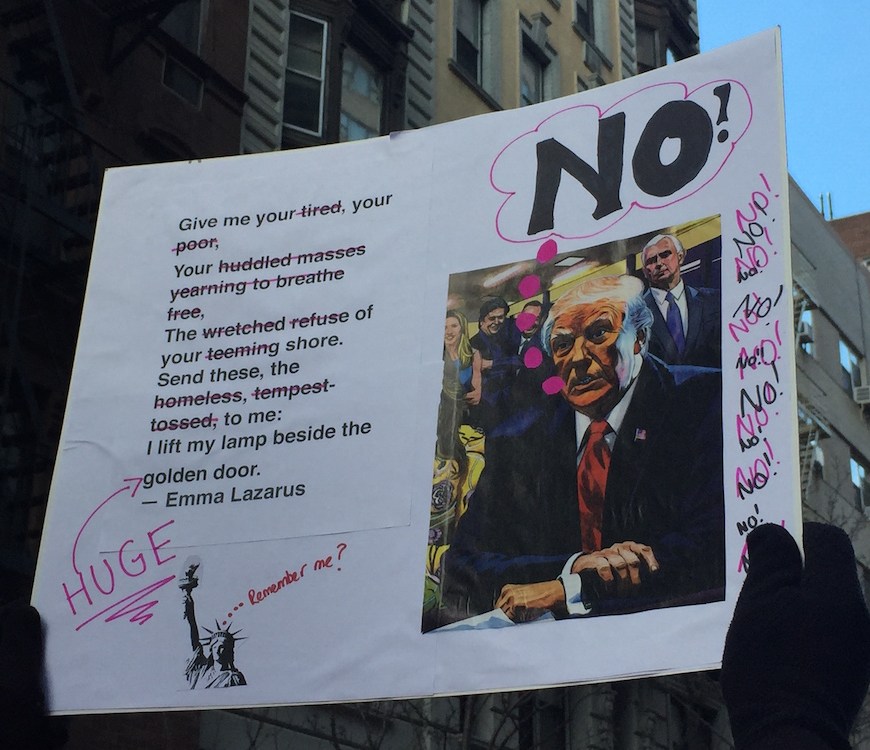 Give me your tired, your
poor,
Your huddled masses
yearning to breathe
free,
The wretched refuse of
your teeming shore.
Send these, the
homeless, tempest-
tossed, to me:
I lift my lamp beside the
golden door.
— Emma Lazarus
HUGE
Remember me?
NO!
NO!
NO!
NO!
NO!
NO!
NO!
NO!
NO!
NO!!
NO!